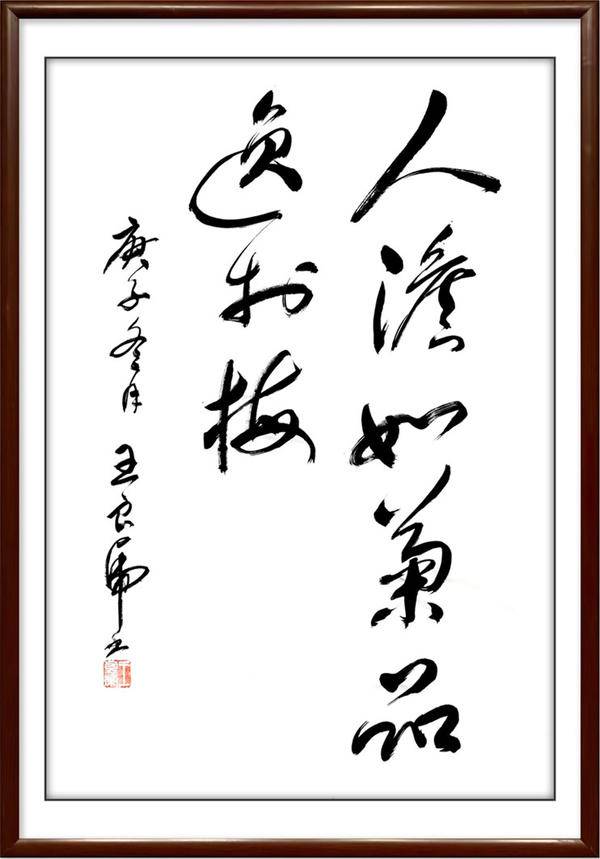 人澹如菊品
逸於梅
庚子冬月 王良虎书